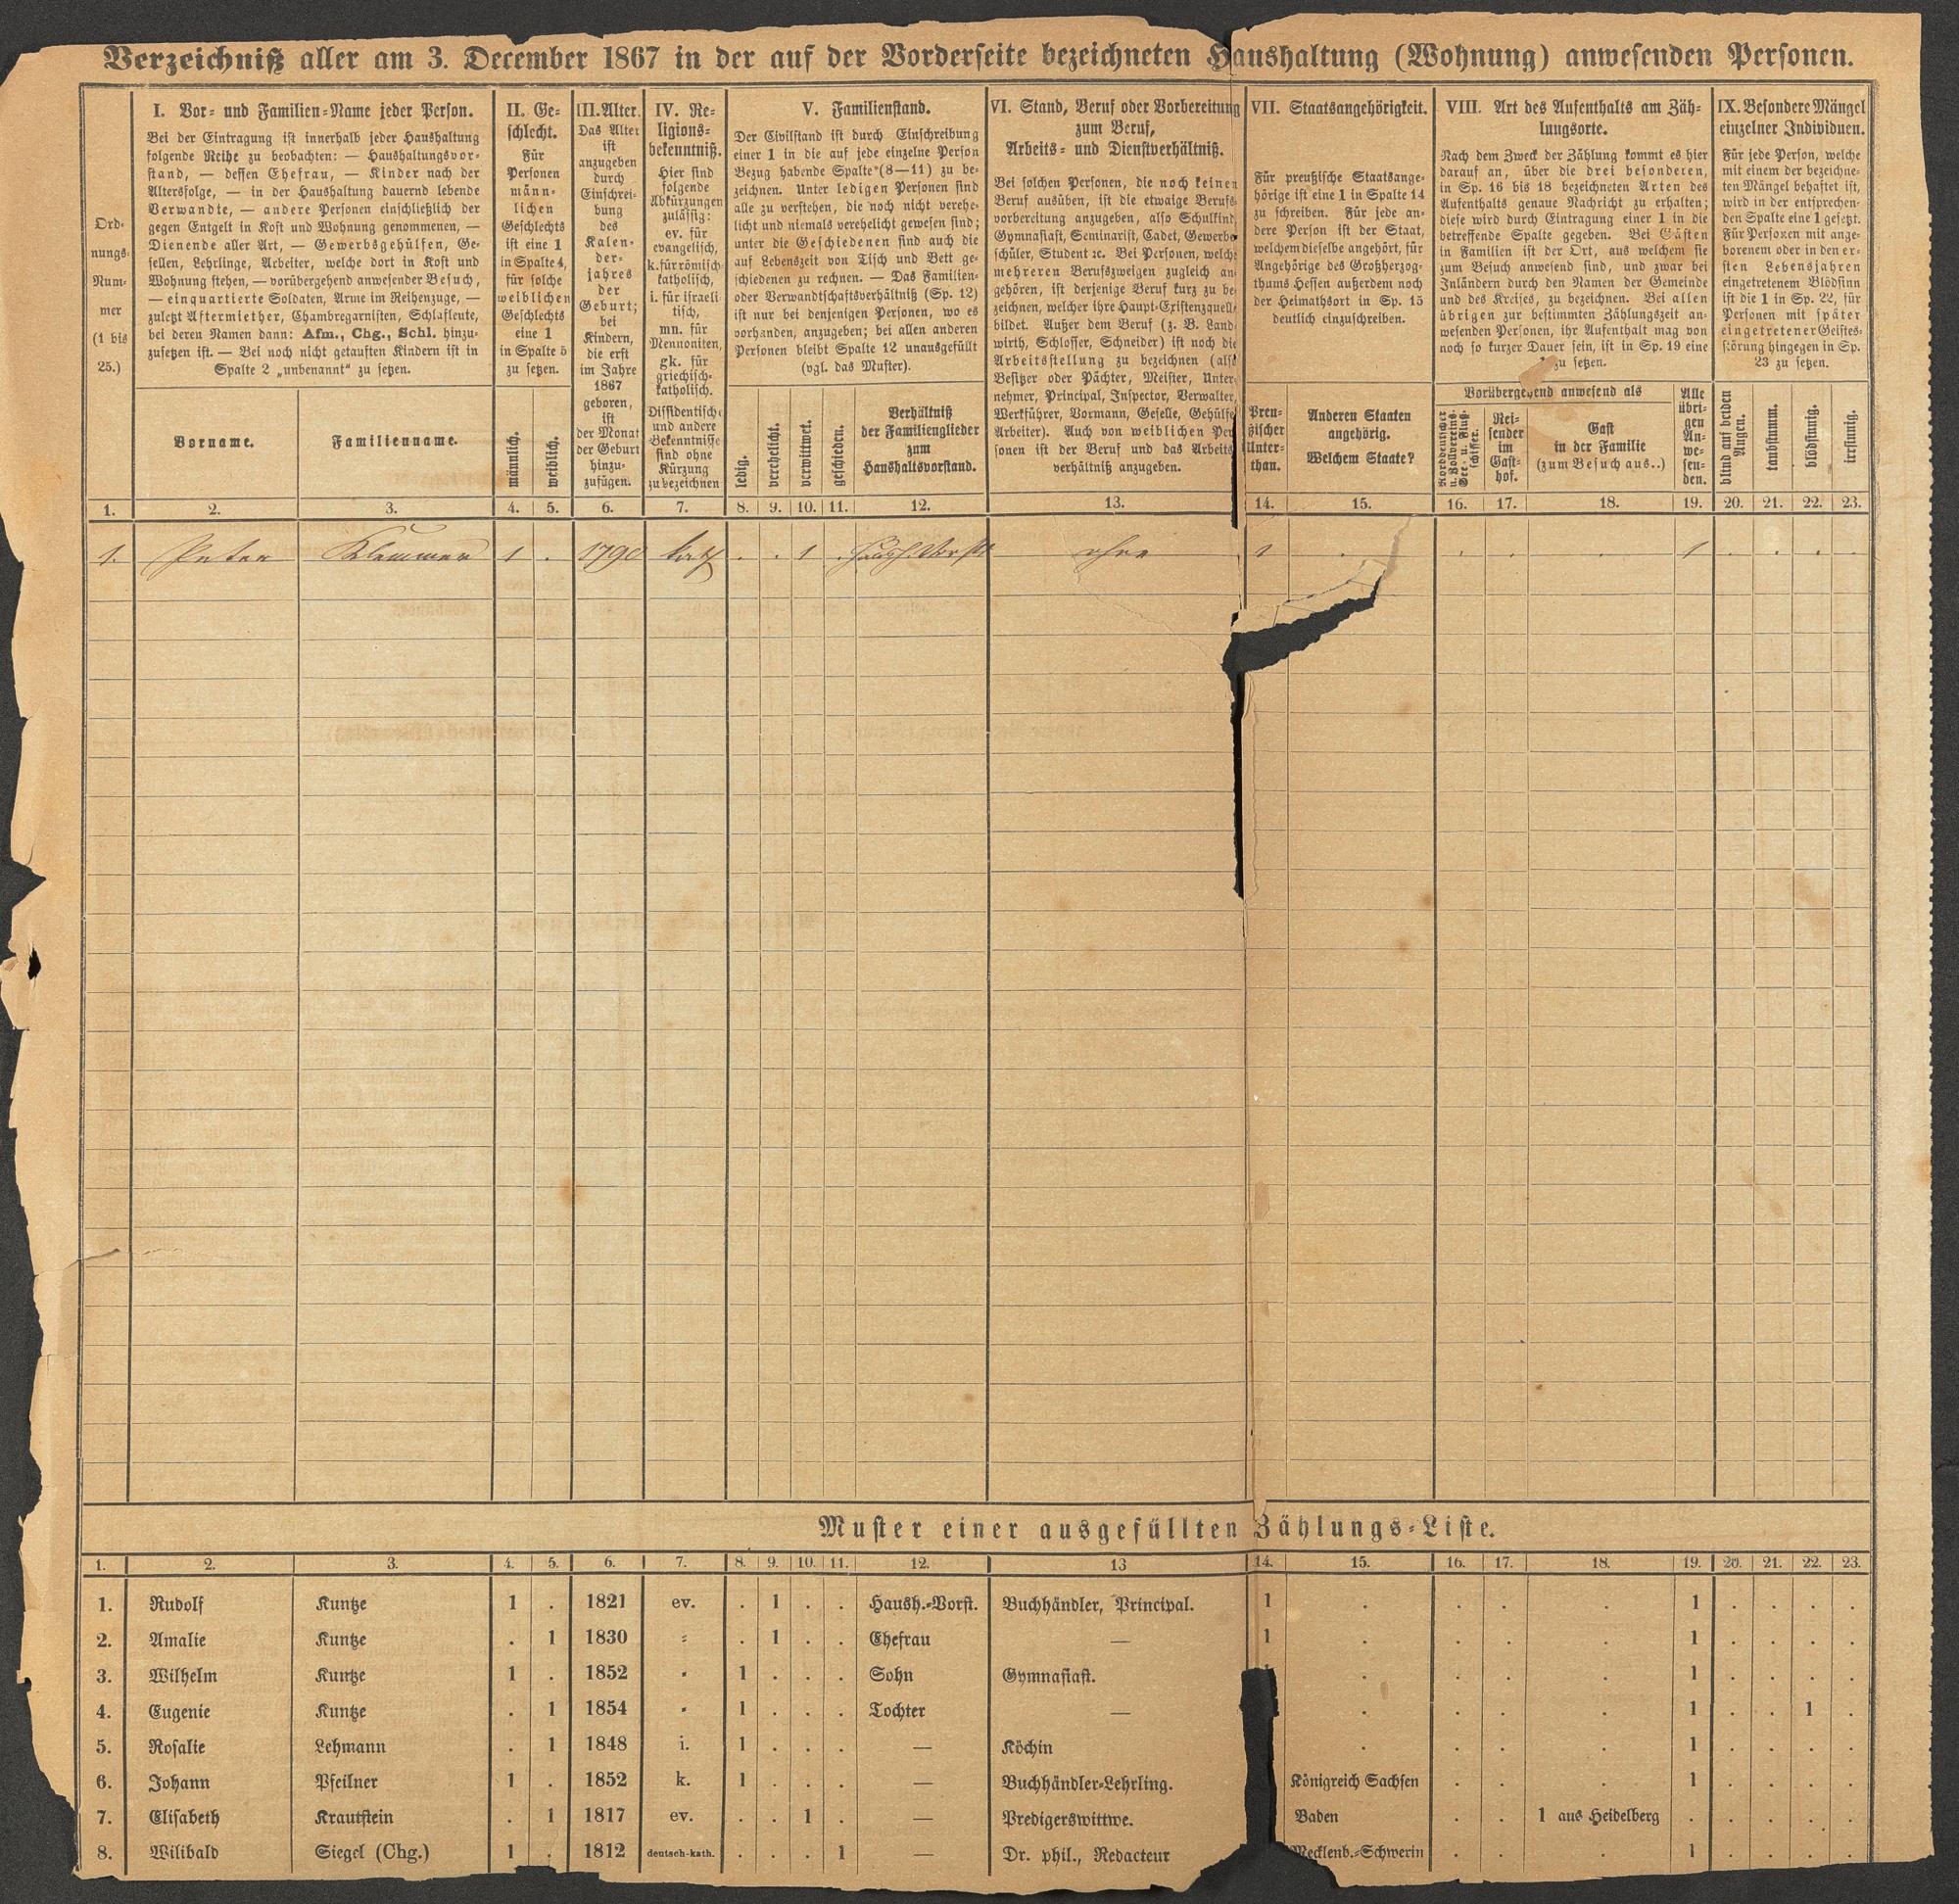 Verzeichniß aller am 3. December 1867 in der auf der Vorderseite bezeichneten Haushaltung (Wohnung) anwesenden Personen.
Ord-
nungs-
Num-
mer
(1 bis
25.)
I. Vor- und Familien-Name jeder Person.
Bei der Eintragung ist innerhalb jeder Haushaltung
folgende Reihe zu beobachten: — Haushaltungsvor-
stand, — dessen Ehefrau, — Kinder nach der
Altersfolge, — in der Haushaltung dauernd lebende
Verwandte, — andere Personen einschließlich der
gegen Entgelt in Kost und Wohnung genommenen, —
Dienende aller Art, — Gewerbsgehülfen, Ge-
sellen, Lehrlinge, Arbeiter, welche dort in Kost und
Wohnung stehen, — vorübergehend anwesender Besuch,
— einquartierte Soldaten, Arme im Reihenzuge, —
zuletzt Aftermiether, Chambregarnisten, Schlafleute,
bei deren Namen dann: Afm., Chg., Schl. hinzu-
zusetzen ist. — Bei noch nicht getauften Kindern ist in
Spalte 2 „unbenannt“ zu setzen.
Vorname.
Familienname.
II. Ge-
schlecht.
Für
Personen
männ-
lichen
Geschlechts
ist eine 1
in Spalte 4,
für solche
weiblichen
Geschlechts
eine 1
in Spalte 5
zu setzen.
männlich.
weiblich.
III. Alter.
Das Alter
ist
anzugeben
durch
Einschrei-
bung
des
Kalen-
der-
jahres
der
Geburt;
bei
Kindern,
die erst
im Jahre
1867
geboren,
ist
der Monat
der Geburt
hinzu-
zufügen.
IV. Re-
ligions-
bekenntniß.
Hier sind
folgende
Abkürzungen
zulässig:
ev. für
evangelisch,
k. für römisch-
katholisch,
i. für israeli-
tisch,
mn. für
Mennoniten,
gk. für
griechisch-
katholisch.
Dissidentische
und andere
Bekenntnisse
sind ohne
Kürzung
zu bezeichnen
V. Familienstand.
Der Civilstand ist durch Einschreibung
einer 1 in die auf jede einzelne Person
Bezug habende Spalte (8—11) zu be-
zeichnen. Unter ledigen Personen sind
alle zu verstehen, die noch nicht verehe-
licht und niemals verehelicht gewesen sind;
unter die Geschiedenen sind auch die
auf Lebenszeit von Tisch und Bett ge-
schiedenen zu rechnen. — Das Familien-
oder Verwandtschaftsverhältniß (Sp. 12)
ist nur bei denjenigen Personen, wo es
vorhanden, anzugeben; bei allen anderen
Personen bleibt Spalte 12 unausgefüllt
(vgl. das Muster).
ledig.
verehelicht.
verwittwet.
geschieden.
Verhältniß
der Familienglieder
zum
Haushaltsvorstand.
VI. Stand, Beruf oder Vorbereitung
zum Beruf,
Arbeits- und Dienstverhältniß.
Bei solchen Personen, die noch keinen
Beruf ausüben, ist die etwaige Berufs-
vorbereitung anzugeben, also Schulkind,
Gymnasiast, Seminarist, Cadet, Gewerbe-
schüler, Student ꝛc. Bei Personen, welche
mehreren Berufszweigen zugleich an-
gehören, ist derjenige Beruf kurz zu be-
zeichnen, welcher ihre Haupt-Existenzquelle
bildet. Außer dem Beruf (z. B. Land-
wirth, Schlosser, Schneider) ist noch die
Arbeitsstellung zu bezeichnen (also
Besitzer oder Pächter, Meister, Unter-
nehmer, Principal, Inspector, Verwalter,
Werkführer, Vormann, Geselle, Gehülfe,
Arbeiter). Auch von weiblichen Per-
sonen ist der Beruf und das Arbeits-
verhältniß anzugeben.
VII. Staatsangehörigkeit.
Für preußische Staatsange-
hörige ist eine 1 in Spalte 14
zu schreiben. Für jede an-
dere Person ist der Staat,
welchem dieselbe angehört, für
Angehörige des Großherzog-
thums Hessen außerdem noch
der Heimathsort in Sp. 15
deutlich einzuschreiben.
Preu-
ßischer
Unter-
than.
Anderen Staaten
angehörig.
Welchem Staate?
VIII. Art des Aufenthalts am Zäh-
lungsorte.
Nach dem Zweck der Zählung kommt es hier
darauf an, über die drei besonderen,
in Sp. 16 bis 18 bezeichneten Arten des
Aufenthalts genaue Nachricht zu erhalten;
diese wird durch Eintragung einer 1 in die
betreffende Spalte gegeben. Bei Gästen
in Familien ist der Ort, aus welchem sie
zum Besuch anwesend sind, und zwar bei
Inländern durch den Namen der Gemeinde
und des Kreises, zu bezeichnen. Bei allen
übrigen zur bestimmten Zählungszeit an-
wesenden Personen, ihr Aufenthalt mag von
noch so kurzer Dauer sein, ist in Sp. 19 eine
zu setzen.
Vorübergehend anwesend als
Norddeutscher
u. Zollvereins-
See- u. Fluß-
schiffer.
Rei-
sender
im
Gast-
hof.
Gast
in der Familie
(zum Besuch aus..)
Alle
übri-
gen
An-
we-
sen-
den.
IX. Besondere Mängel
einzelner Individuen.
Für jede Person, welche
mit einem der bezeichne-
ten Mängel behaftet ist,
wird in der entsprechen-
den Spalte eine 1 gesetzt.
Für Personen mit ange-
borenem oder in den er-
sten Lebensjahren
eingetretenem Blödsinn
ist die 1 in Sp. 22, für
Personen mit später
eingetretener Geistes-
störung hingegen in Sp.
23 zu setzen.
blind auf beiden
Augen.
taubstumm.
blödsinnig.
irrsinnig.
1. 2. 3. 4. 5. 6. 7. 8. 9. 10. 11. 12. 13. 14. 15. 16. 17. 18. 19. 20. 21. 22. 23.
1. Peter Klammer 1 . 1790 kath . . 1 . Haush. Vorst ohne 1 . . . . 1 . . . .
Muster einer ausgefüllten Zählungs-Liste.
1. 2. 3. 4. 5. 6. 7. 8. 9. 10. 11. 12. 13 14. 15. 16. 17. 18. 19. 20. 21. 22. 23.
1. Rudolf Kuntze 1 . 1821 ev. . 1 . . Haush.-Vorst. Buchhändler, Principal. 1 . . . . 1 . . . .
2. Amalie Kuntze . 1 1830 " . 1 . . Ehefrau — 1 . . . . 1 . . . .
3. Wilhelm Kuntze 1 . 1852 " 1 . . . Sohn Gymnasiast. . . . . 1 . . . .
4. Eugenie Kuntze . 1 1854 " 1 . . . Tochter — . . . . 1 . . 1 .
5. Rosalie Lehmann . 1 1848 i. 1 . . . — Köchin . . . . 1 . . . .
6. Johann Pfeilner 1 . 1852 k. 1 . . . — Buchhändler-Lehrling. Königreich Sachsen . . . 1 . . . .
7. Elisabeth Krautstein . 1 1817 ev. . . 1 . — Predigerswittwe. Baden . . 1 aus Heidelberg . . . . .
8. Wilibald Siegel (Chg.) 1 . 1812 deutsch-kath. . . . 1 — Dr. phil., Redacteur Mecklenb.-Schwerin . . . 1 . . . .